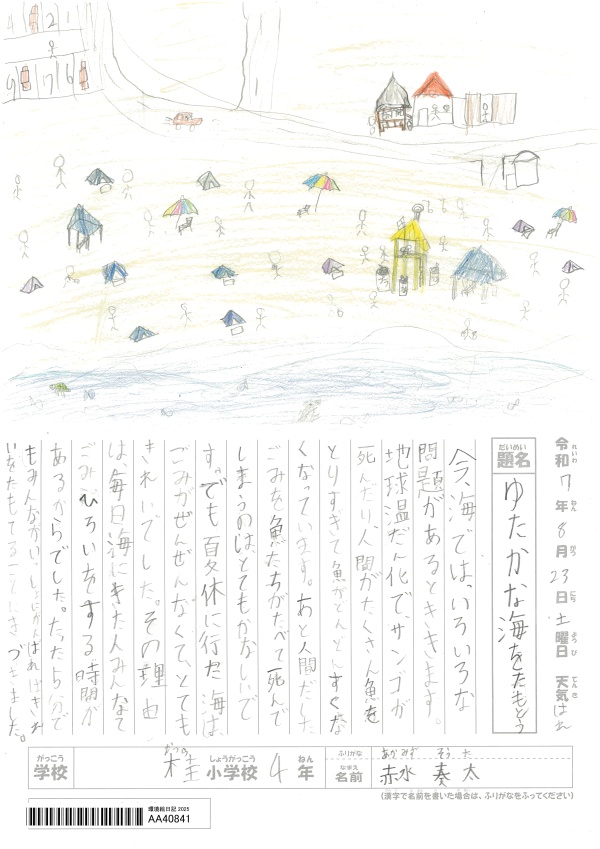 4
9 7 6
令和 7 年 8 月 23 日 土 曜日 天気 はれ
れいわ ねん がつ にち ようび てんき
だいめい
題名 ゆたかな海をたもとう
今、海では、いろいろな
問題があるとききます。
地球温だん化で、サンゴが
死んだり、人間がたくさん魚を
とりすぎて魚がどんどんすくな
くなっています。あと人間がだした
ごみを魚たちがたべて死んで
しまうのは、とてもかなしいで
す。でも夏休に行た海は、
ごみがぜんぜんなくて、とても
きれいでした。その理由
は毎日海にきた人みんなで
ごみひろいをする時間が
あるからでした。たった5分で
もみんながいっしょに
がっこう
学校
かつら
桂 小学校 4 年
しょうがっこう ねん
ふりがな あかみず そう た
なまえ
名前 赤水 奏太
(漢字で名前を書いた場合は、ふりがなをふってください)
環境絵日記 2025
AA40841